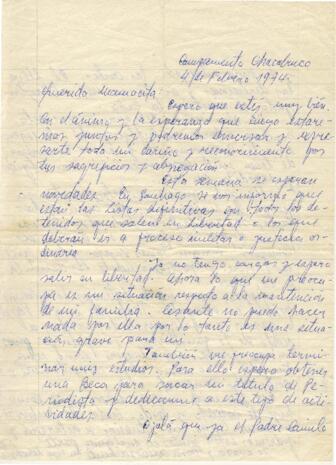 Campamento Chacabuco
4 de Febrero 1974.
Querida Mamacita:
Espero que estés muy bien
en el ánimo y la esperanza que luego estare-
mos juntos y podremos conversar y expre-
sarte todo mi cariño y reconocimiento por
tus sacrificios y abnegación.-
Esta semana se esperan
novedades. En Santiago se nos informó que
están las listas definitivas con todos los de-
tenidos que salen en libertad o los que
deberán ir a proceso militar o justicia or-
dinaria.
Yo no tengo cargos y espero
salir en libertad. Ahora lo que me preocu-
pa es mi situación respecto a la mantención
de mi familia. Cesante no puedo hacer
nada por ella por lo tanto es una situa-
ción grave para mí.
También me preocupa termi-
nar mis estudios. Para ello espero obtener
una Beca para sacar mi título de Pe-
riodista y dedicarme a este tipo de acti-
vidades.
Ojalá que ya el Padre Camilo